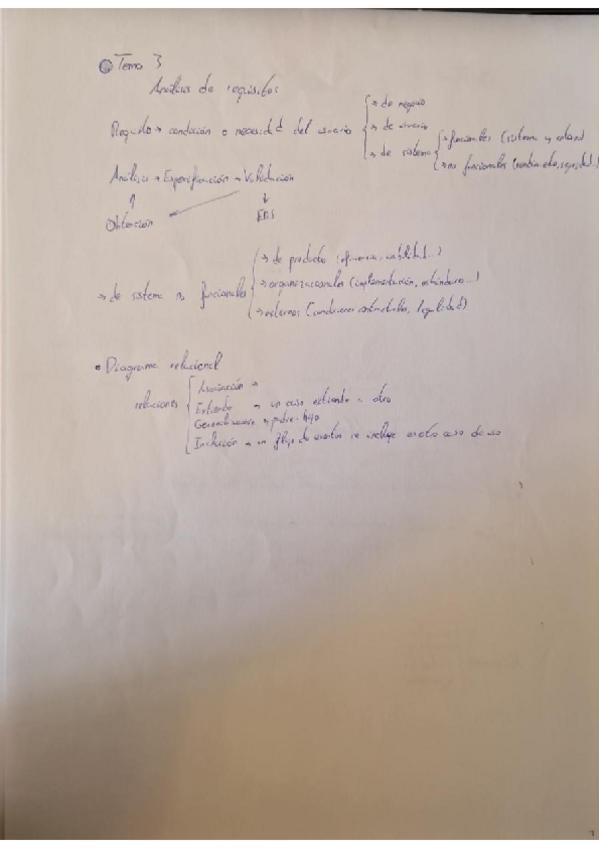 Tema 3
Análisis de requisitos
Requisito → condición o necesidad del usuario
→ de negocio
→ de usuario
→ de sistema
→ funcionales (sistema y entorno)
→ no funcionales (rendimiento, seguridad...)
Análisis → Especificación → Validación
Obtención
ERS
→ de sistema no funcionales
→ de producto (eficiencia, usabilidad...)
→ organizacionales (implementación, estándares...)
→ externos (condiciones contractuales, legalidad)
• Diagrama relacional
relaciones
Asociación →
Extiende → un caso extiende a otro
Generalización → padre-hijo
Inclusión → un flujo de eventos se incluye en otro caso de uso